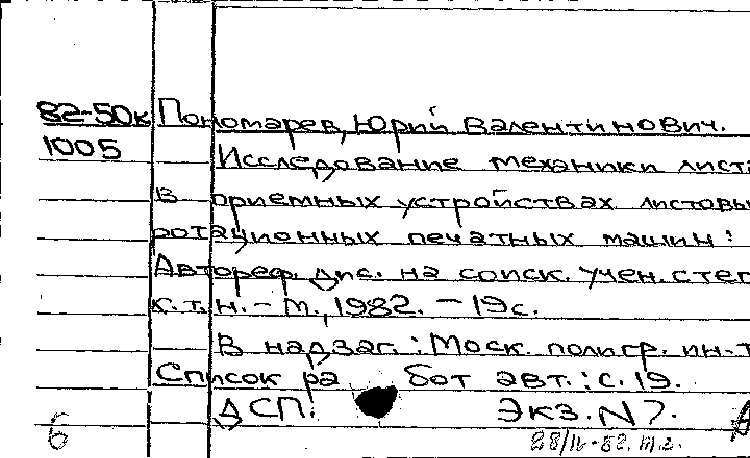 82-50к Пономарев, Юрий Валентинович.
1005 Исследование механики листа
в приемных устройствах листовых
ротационных печатных машин:
Автореф. дис. на соиск. учен. степ
к.т.н. - М., 1982. - 19 с.
В надзаг.: Моск. полигр. ин-т
Список ра бот авт.: с. 19.
ДСП. Экз. N 7.
6